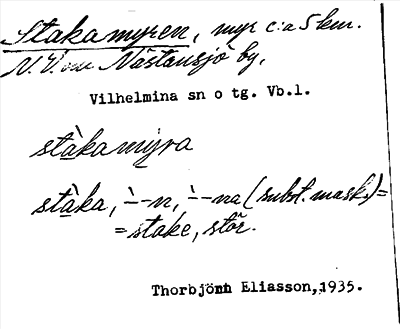 Stakamyren, myr c:a 5 km.
N.V. om Nästansjö by,
Vilhelmina sn o tg. Vb.l.
stàkamyra
stàka, `--n, `--na (subst. mask.) =
= stake, stör.
Thorbjörn Eliasson, 1935.